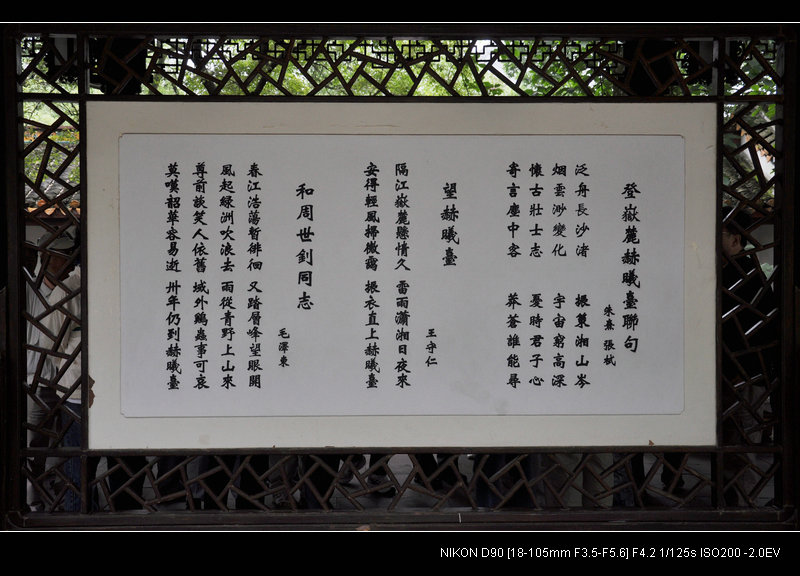 登嶽麓赫曦臺聯句
朱熹 張栻
泛舟長沙渚 振策湘山岑
烟雲渺變化 宇宙窮高深
懷古壯士志 憂時君子心
寄言塵中客 莽蒼誰能尋
望赫曦臺
王守仁
隔江嶽麓懸情久 雷雨瀟湘日夜來
安得輕風掃微靄 振衣直上赫曦臺
和周世釗同志
毛澤東
春江浩蕩暫徘徊 又踏層峰望眼開
風起綠洲吹浪去 雨從青野上山來
尊前談笑人依舊 域外鷄蟲事可哀
莫嘆韶華容易逝 卅年仍到赫曦臺
NIKON D90 [18-105mm F3.5-F5.6] F4.2 1/125s ISO200 -2.0EV